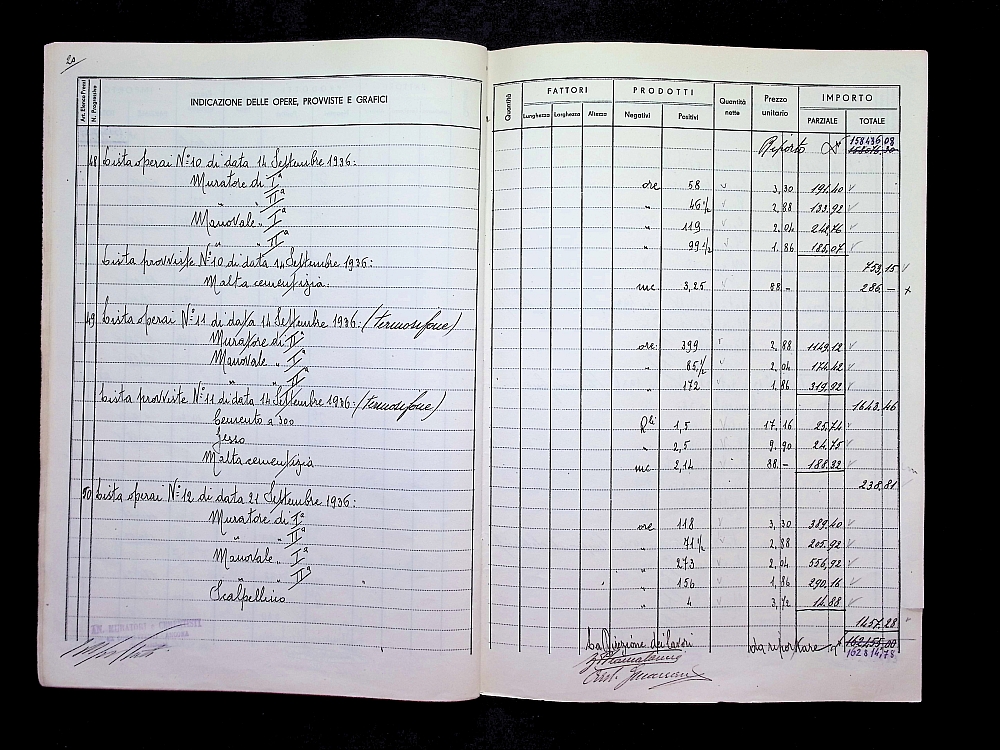 20
Art. Elenco Prezzi
N. Progressivo
INDICAZIONE DELLE OPERE, PROVVISTE E GRAFICI
Quantità
FATTORI
Lunghezza Larghezza Altezza
PRODOTTI
Negativi Positivi
Quantità nette
Prezzo unitario
IMPORTO
PARZIALE TOTALE
Riporto 158436,08
48 Lista operai N° 10 di data 14 Settembre 1936:
Muratore di Iª ore 58 3,30 191,40
" " IIª " 46½ 2,88 133,92
Manovale " Iª " 119 2,04 242,76
" " IIª " 99½ 1,86 185,07
753,15
Lista provviste N° 10 di data 14 Settembre 1936:
Malta cementizia mc. 3,25 88 – 286 –
49 Lista operai N° 11 di data 14 Settembre 1936: (termosifone)
Muratore di IIª ore 399 2,88 1149,12
Manovale " Iª " 85½ 2,04 174,42
" " IIª " 172 1,86 319,92
1643,46
Lista provviste N° 11 di data 14 Settembre 1936: (termosifone)
Cemento a 300 Qli 1,5 17,16 25,74
Gesso " 2,5 9,90 24,75
Malta cementizia mc 2,14 88 – 188,32
238,81
50 Lista operai N° 12 di data 21 Settembre 1936:
Muratore di Iª ore 118 3,30 389,40
" " IIª " 71½ 2,88 205,92
Manovale " Iª " 273 2,04 556,92
" " IIª " 156 1,86 290,16
Scalpellino " 4 3,72 14,88
1457,28
La Direzione dei lavori
da riportare 162155,00
162814,78